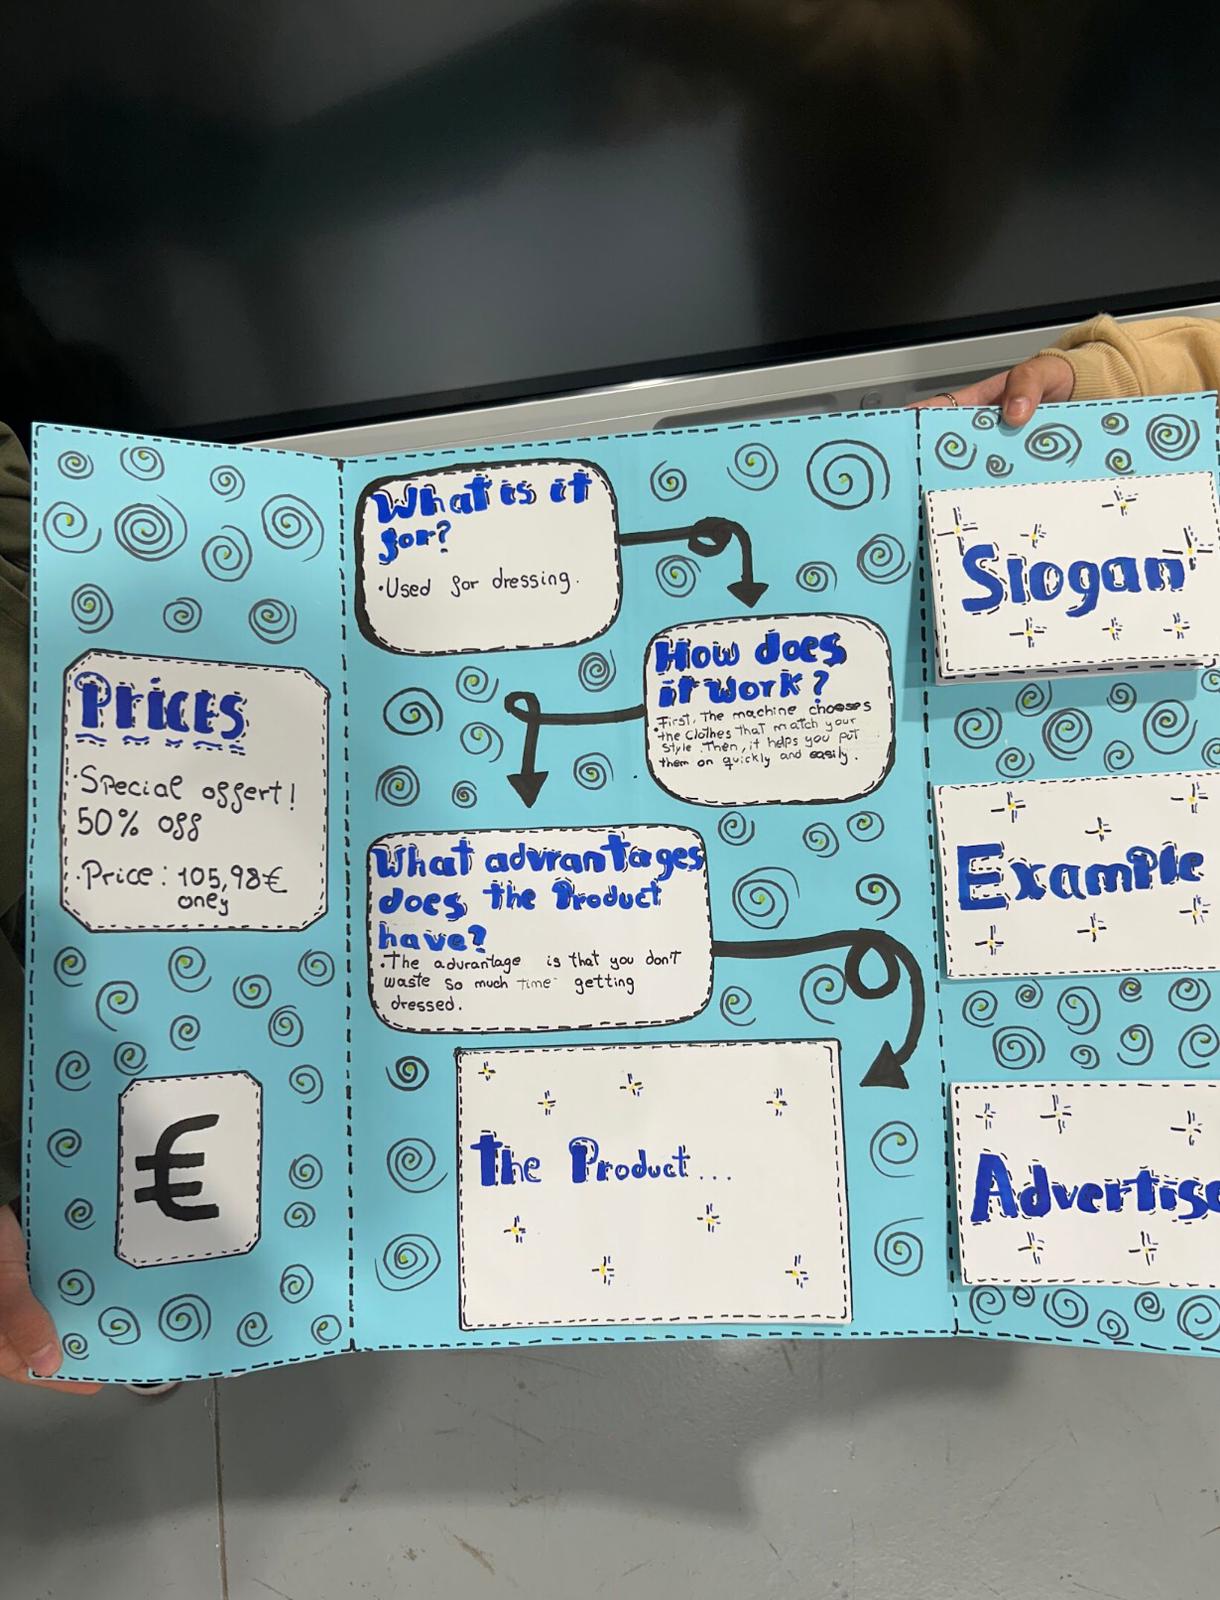 Prices
·Special offert!
50% off
·Price: 105,98€
only
€
What is it
for?
·Used for dressing.
How does
it work?
·First, the machine chooses
the clothes that match your
style. Then, it helps you put
them on quickly and easily.
What advrantages
does the Product
have?
·The advrantage is that you don't
waste so much time getting
dressed.
The Product...
Slogan
Example
Advertise